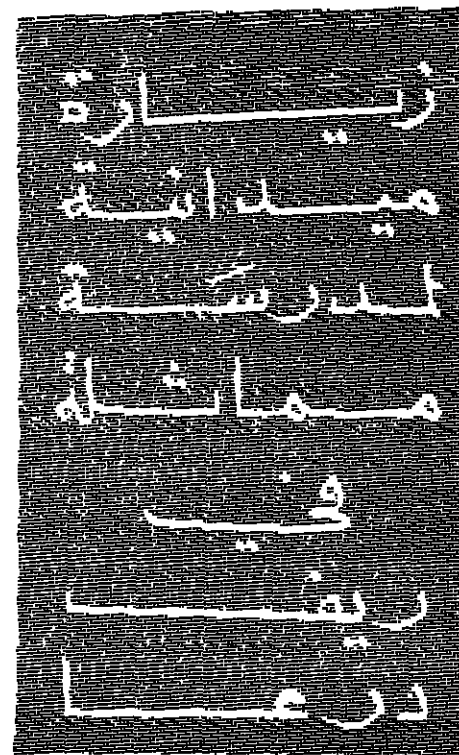 زيارة
ميدانية
لمدرسة
مماثلة
في
ريف
درعا